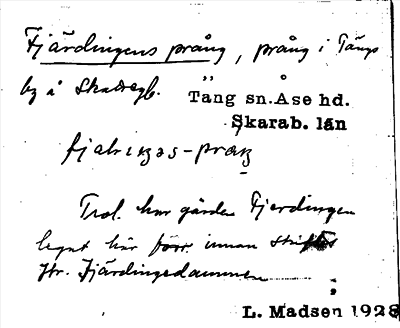 Fjärdingens prång, prång i Tängs
by å Skadegb.
Täng sn. Åse hd.
Skarab. län
fjälıŋəs-praŋ
Trol. har gården Fjerdingen
legat här förr innan skiftet
Jfr. Fjärdingedammen
L. Madsen 1928